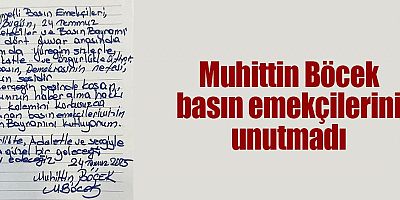 Basın Emekçileri,
Bugün, 24 Temmuz
ve Basın Bayramı
dört duvar arasında
da yüreğim sizlerle,
özgürlükle
basın, Demokrasinin nefesi,
sesidir
peşinde koşan,
haber alma hakkı
kalemini koruyarak
basın emekçilerinin
Bayramını kutluyorum.
Adaletle ve sevgiyle
güzel bir geleceği
24 Temmuz 2025
Muhittin BÖCEK
MBöcek
Muhittin Böcek
basın emekçilerini
unutmadı